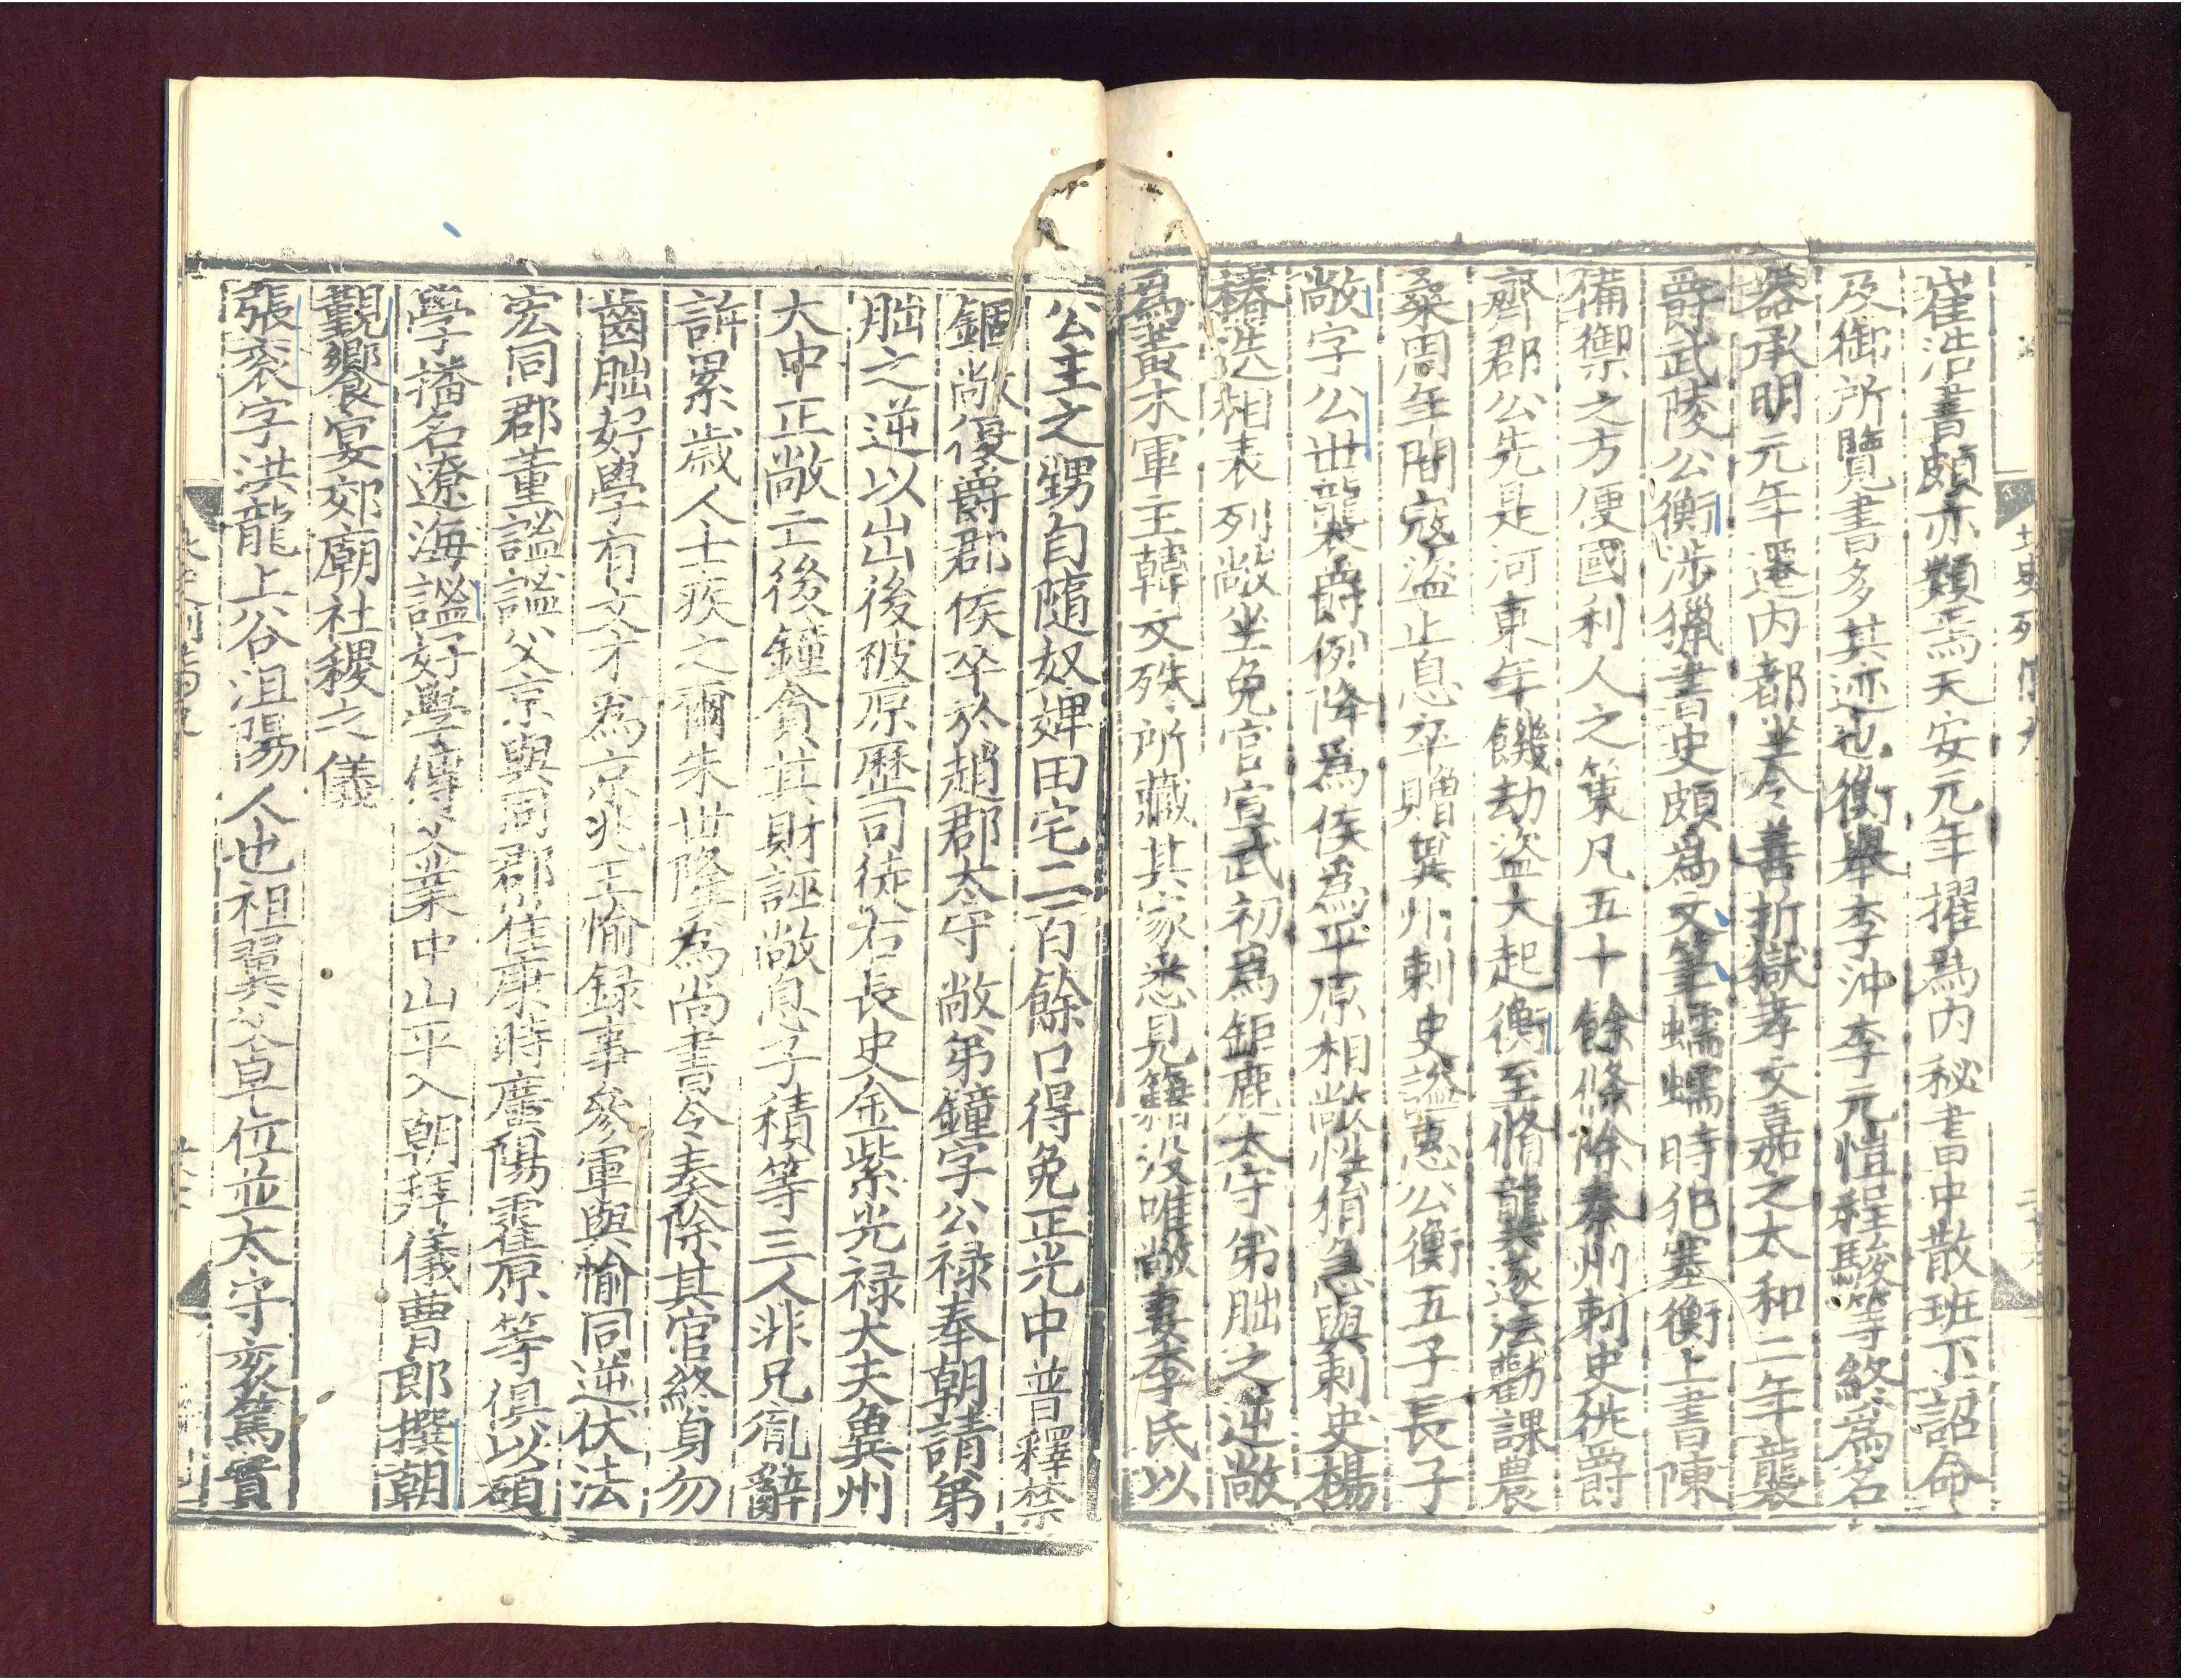 崔浩書頗亦類焉天安元年擢爲內秘書中散班下詔命
及御所覽書多其迹也衡舉李沖李元愷程駿等終爲名
器承明元年遷內都坐令善折獄孝文嘉之太和二年襲
爵武陵公衡涉獵書史頗爲文筆蠕蠕時犯塞衡上書陳
備禦之方便國利人之策凡五十餘條除秦州刺史徙爵
齊郡公先是河東年饑劫盜大起衡至脩龔遂法勸課農
桑周年間寇盜止息卒贈冀州刺史謚惠公衡五子長子
敞字公世襲爵例降爲侯爲平原相敞性狷急與刺史楊
椿迭相表列敞坐免官宣武初爲鉅鹿太守弟朏之逆敞
爲黃木軍主韓文殊所藏其家悉見籍沒唯敞妻李氏以
公主之甥自隨奴婢田宅二百餘口得免正光中普釋禁
錮敞復爵郡侯卒於趙郡太守敞弟鐘字公祿奉朝請弟
朏之逆以出後被原歷司徒右長史金紫光祿大夫冀州
大中正敞亡後鐘貪其財誣敞息子積等三人非兄胤辭
訴累歲人士疾之爾朱世隆爲尚書令奏除其官終身勿
齒朏好學有文才爲京兆王愉錄事參軍與愉同逆伏法
宏同郡董謐謐父京與同郡崔康時廣陽霍原等俱以碩
學播名遼海謐好學傳父業中山平入朝拜儀曹郎撰朝
覲饗宴郊廟社稷之儀
張袞字洪龍上谷沮陽人也祖翼父卓位並太守袞篤實